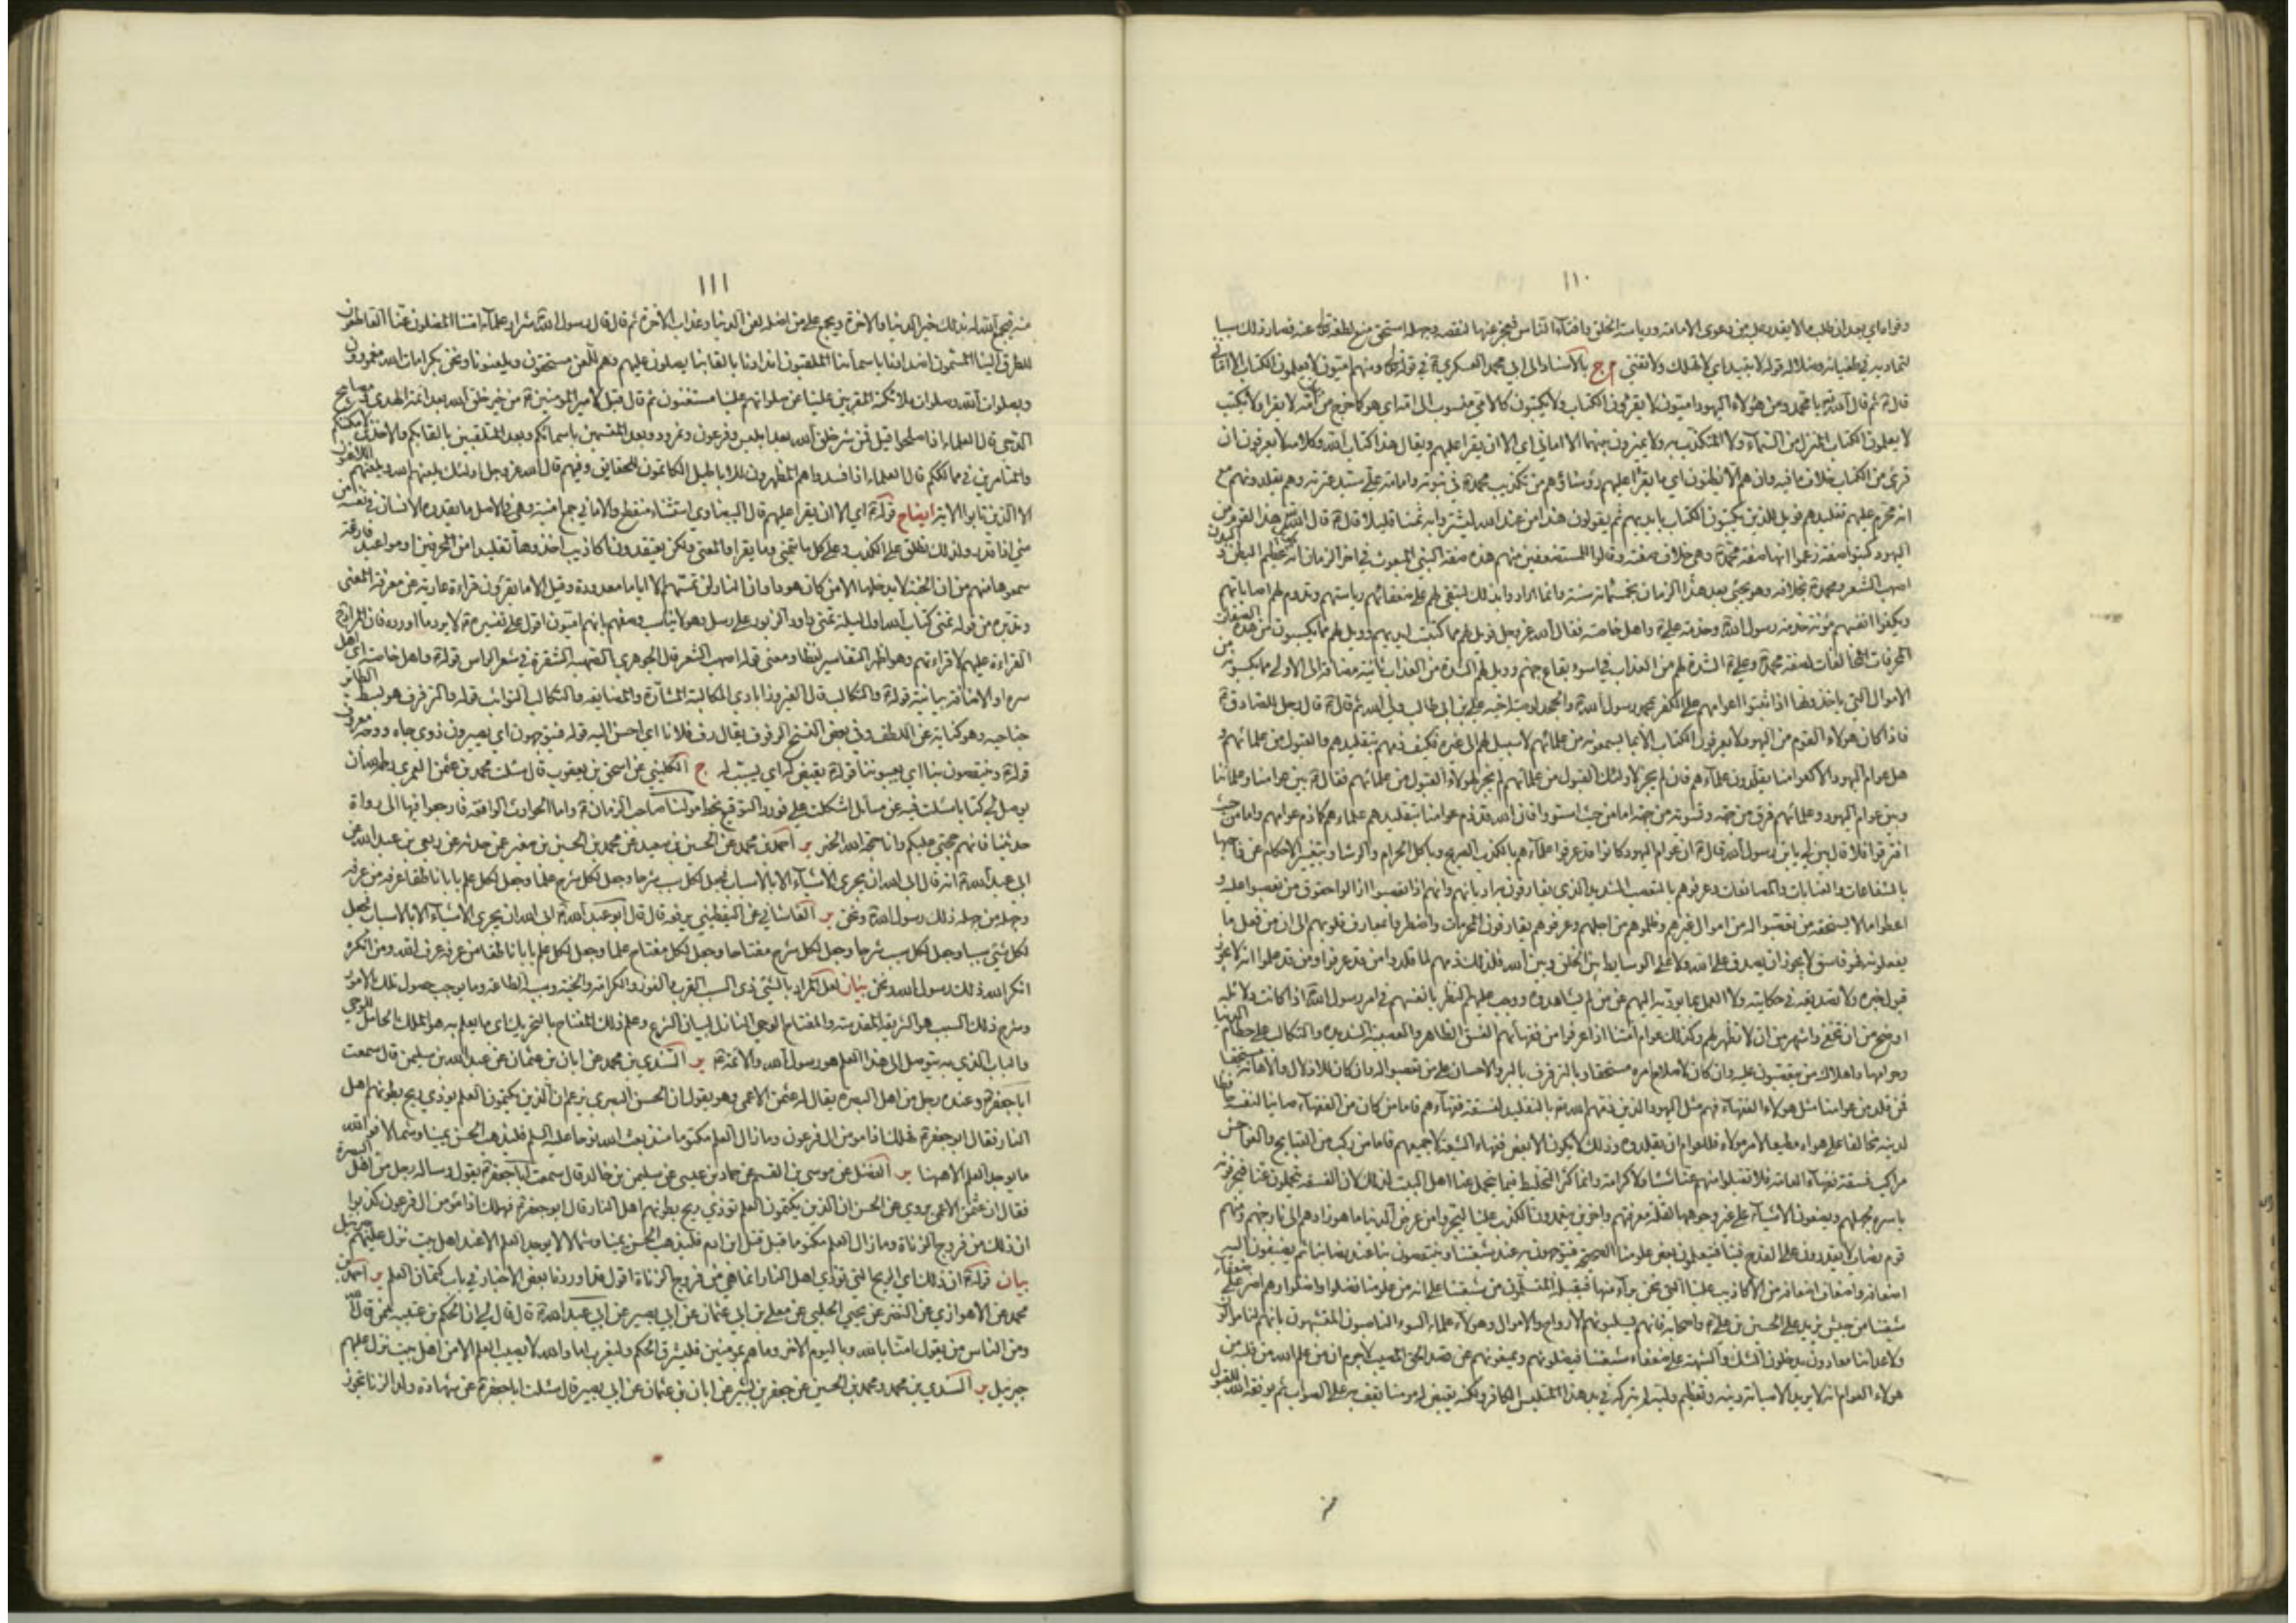 ١١٠
لتماديه في طغيانه وضلاله قوله لا يتبد اي لا يهلك ولا تفتني م ج بالاسناد الى ابي محمد العسكري ع في قوله تع ومنهم اميون لا يعلمون الكتاب الا اماني
قال ع ثم قال الله يا محمد ومن هؤلاء اليهود اميون لا يقرؤن الكتاب ولا يكتبون كالامي منسوب الى امه اي هو كما خرج من بطن امه لا يقرا ولا يكتب
لا يعلمون الكتاب المنزل من السماء ولا المتكذب به ولا يميزون بينهما الا اماني اي الا ان يقرا عليهم ويقال هذا كتاب الله وكلامه لا يعرفون ان
قرئ من الكتاب خلاف ما فيه وان هم الا يظنون اي ما يقرا عليهم رؤساؤهم من تكذيب محمد ص في نبوته وامامة علي سيد عترته وهم يقلدونهم مع
انه محرم عليهم تقليدهم فويل للذين يكتبون الكتاب بايديهم ثم يقولون هذا من عند الله ليشتروا به ثمنا قليلا قال ع قال الله تع هذا القوم من
اليهود كتبوا صفة زعموا انها صفة محمد ص وهي خلاف صفته وقالوا للمستضعفين منهم هذه صفة النبي المبعوث في اخر الزمان انه طويل عظيم البدن والبطن
اصهب الشعر ومحمد ص بخلافه وهو يجئ بعد هذا الزمان بخمسمائة سنة وانما ارادوا بذلك لتبقى لهم على ضعفائهم رياستهم وتدوم لهم اصاباتهم
ويكفوا انفسهم مؤنة خدمة رسول الله ص وخدمة علي ع واهل خاصته فقال الله عز وجل فويل لهم مما كتبت ايديهم وويل لهم مما يكسبون من هذه الصفات
المحرفات المخالفات لصفة محمد ص وعلي ع الشدة لهم من العذاب في اسوء بقاع جهنم وويل لهم الشدة من العذاب ثانية مضافة الى الاولى مما يكسبونه من
الاموال التي ياخذونها اذا ثبتوا عوامهم على الكفر بمحمد رسول الله ص والجحد لوصية اخيه علي بن ابي طالب ولي الله ثم قال ع قال رجل للصادق ع
فاذا كان هؤلاء القوم من اليهود لا يعرفون الكتاب الا بما يسمعونه من علمائهم لا سبيل لهم الى غيره فكيف ذمهم بتقليدهم والقبول من علمائهم و
هل عوام اليهود الا كعوامنا يقلدون علماءهم فان لم يجز لاولئك القبول من علمائهم لم يجز لهؤلاء القبول من علمائهم فقال ع بين عوامنا وعلمائنا
وبين عوام اليهود وعلمائهم فرق من جهة وتسوية من جهة اما من حيث استووا فان الله قد ذم عوامنا بتقليدهم علماءهم كما ذم عوامهم واما من حيث
افترقوا فلا قال بين لي يا بن رسول الله قال ع ان عوام اليهود كانوا قد عرفوا علماءهم بالكذب الصريح وباكل الحرام والرشاء وبتغيير الاحكام عن واجبها
بالشفاعات والعنايات والمصانعات وعرفوهم بالتعصب الشديد الذي يفارقون به اديانهم وانهم اذا تعصبوا ازالوا حقوق من تعصبوا عليه و
اعطوا ما لا يستحقه من تعصبوا له من اموال غيرهم وظلموهم من اجلهم وعرفوهم يقارفون المحرمات واضطروا بمعارف قلوبهم الى ان من فعل ما
يفعلونه فهو فاسق لا يجوز ان يصدق على الله ولا على الوسايط بين الخلق وبين الله فلذلك ذمهم لما قلدوا من قد عرفوا ومن قد علموا انه لا يجوز
قبول خبره ولا تصديقه في حكايته ولا العمل بما يؤديه اليهم عمن لم يشاهدوه ووجب عليهم النظر بانفسهم في امر رسول الله ص اذ كانت دلائله
اوضح من ان تخفى واشهر من ان لا تظهر لهم وكذلك عوام امتنا اذا عرفوا من فقهائهم الفسق الظاهر والعصبية الشديدة والتكالب على حطام الدنيا
وحرامها واهلاك من يتعصبون عليه وان كان لاصلاح امره مستحقا وبالترفرف بالبر والاحسان على من تعصبوا له وان كان للاذلال والاهانة مستحقا
فمن قلد من عوامنا مثل هؤلاء الفقهاء فهم مثل اليهود الذين ذمهم الله تع بالتقليد لفسقة فقهاءهم فاما من كان من الفقهاء صاينا لنفسه حافظا
لدينه مخالفا على هواه مطيعا لامر مولاه فللعوام ان يقلدوه وذلك لا يكون الا بعض فقهاء الشيعة لا جميعهم فاما من ركب من القبايح والفواحش
مراكب فسقة فقهاء العامة فلا تقبلوا منهم عنا شيئا ولا كرامة وانما كثر التخليط فيما يتحمل عنا اهل البيت لذلك لان الفسقة يتحملون عنا فيحرفونه
باسره لجهلهم ويضعون الاشياء على غير وجوهها لقلة معرفتهم واخرين يتعمدون الكذب علينا ليجروا من عرض الدنيا ما هو زادهم الى نار جهنم ومنهم
قوم نصاب لا يقدرون على القدح فينا فيتعلمون بعض علومنا الصحيحة فيتوجهون به عند شيعتنا وينتقصون بنا عند نصابنا ثم يضيفون اليه
اضعافه واضعاف اضعافه من الاكاذيب علينا التي نحن براء منها فيقبله المستسلمون من شيعتنا على انه من علومنا فضلوا واضلوا وهم اضر على ضعفاء
شيعتنا من جيش يزيد على الحسين بن علي ع واصحابه فانهم يسلبونهم الارواح والاموال وهؤلاء علماء السوء الناصبون المتشبهون بانهم لنا موالون
ولاعدائنا معادون يدخلون الشك والشبهة على ضعفاء شيعتنا فيضلونهم ويمنعونهم عن قصد الحق المصيب لا جرم ان من علم الله من قلبه من
هؤلاء العوام انه لا يريد الا صيانة دينه وتعظيم وليه لم يتركه في يد هذا المتلبس الكافر ولكنه يقيض له مؤمنا يقف به على الصواب ثم يوفقه الله للقبول
١١١
منه فيجمع الله له بذلك خير الدنيا والاخرة ويجمع على من اضله لعن الدنيا وعذاب الاخرة ثم قال قال رسول الله ص شرار علماء امتنا المضلون عنا القاطعون
للطرق الينا المسمون اضدادنا باسمائنا الملقبون اندادنا بالقابنا يصلون عليهم وهم للعن مستحقون ويلعنونا ونحن بكرامات الله مغمورون
وبصلوات الله وصلوات ملائكته المقربين علينا عن صلواتهم علينا مستغنون ثم قال قيل لامير المؤمنين ع من خير خلق الله بعد ائمة الهدى ومصابيح
الدجى قال العلماء اذا صلحوا قيل فمن شر خلق الله بعد ابليس وفرعون ونمرود وبعد المتسمين باسمائكم وبعد المتلقبين بالقابكم والاخذين لامكنتكم
والمتامرين في ممالككم قال العلماء اذا فسدوا هم المظهرون للاباطيل الكاتمون للحقايق وفيهم قال الله عز وجل اولئك يلعنهم الله ويلعنهم اللاعنون
الا الذين تابوا الاية ايضاح قوله ع اي الا ان يقرا عليهم قال البيضاوي استثناء منقطع والاماني جمع امنية وهي في الاصل ما يقدره الانسان في نفسه من
منى اذا قدر ولذلك تطلق على الكذب وعلى كل ما يتمنى وما يقرا والمعنى ولكن يعتقدون اكاذيب اخذوها تقليدا من المحرفين او مواعيد فارغة
سمعوها منهم من ان الجنة لا يدخلها الا من كان هودا وان النار لن تمسهم الا اياما معدودة وقيل الا ما يقرؤن قراءة عارية عن معرفة المعنى
وتدبره من قوله تمنى كتاب الله اول ليلة تمني داود الزبور على رسل وهو لا يناسب وصفهم بانهم اميون اقول على تفسيره ع لا يرد ما اورده فان المراد
القراءة عليهم لا قراءتهم وهو اظهر التفاسير لفظا ومعنى قوله اصهب الشعر قال الجوهري الصهبة الشقرة في شعر الراس قوله ع واهل خاصته اي اهل
سره او الاضافة بيانية قوله ع والتكالب قال الفيروزابادي المكالبة المشارة والمضايقة والتكالب التواثب قوله والترفرف هو بسط الطائر
جناحيه وهو كناية عن اللطف وفي بعض النسخ الرفوف يقال رف فلانا اي احسن اليه قوله فيتوجهون اي يصيرون ذوي جاه ووجه معروف
قوله ع وينتقصون بنا اي يعيبوننا قوله يقيض له اي يسبب له ج الكليني عن اسحق بن يعقوب قال سئلت محمد بن عثمن العمري رحمه الله ان
يوصل لي كتابا سئلت فيه عن مسائل اشكلت علي فورد التوقيع بخط مولينا صاحب الزمان ع واما الحوادث الواقعة فارجعوا فيها الى رواة
حديثنا فانهم حجتي عليكم وانا حجة الله الخبر ير احمد بن محمد عن الحسين بن سعيد عن محمد بن الحسين بن صغير عمن حدثه عن ربعي بن عبد الله عن
ابي عبد الله ع انه قال ابى الله ان يجري الاشياء الا بالاسباب فجعل لكل سبب شرحا وجعل لكل شرح علما وجعل لكل علم بابا ناطقا عرفه من عرفه
وجهله من جهله ذلك رسول الله ص ونحن ير القاشاني عن اليقطيني يرفعه قال قال ابو عبد الله ع ابى الله ان يجري الاشياء الا بالاسباب فجعل
لكل شئ سببا وجعل لكل سبب شرحا وجعل لكل شرح مفتاحا وجعل لكل مفتاح علما وجعل لكل علم بابا ناطقا من عرفه عرف الله ومن انكره
انكر الله ذلك رسول الله ونحن بيان لعل المراد بالشئ ذي السبب القرب والفوز والكرامة والجنة وسببه الطاعة وما يوجب حصول تلك الامور
وشرح ذلك السبب هو الشريعة المقدسة والمفتاح الوحي النازل لبيان الشرع وعلم ذلك المفتاح بالتحريك اي ما يعلم به هو الملك الحامل للوحي
والباب الذي به يتوصل الى هذا العلم هو رسول الله والائمة ع ير السندي بن محمد عن ابان بن عثمان عن عبد الله بن سليمن قال سمعت
ابا جعفر ع وعنده رجل من اهل البصرة يقال له عثمن الاعمى وهو يقول ان الحسن البصري يزعم ان الذين يكتمون العلم يؤذي ريح بطونهم اهل
النار فقال ابو جعفر ع فهلك اذا مؤمن ال فرعون وما زال العلم مكتوما منذ بعث الله نوحا عليه السلم فليذهب الحسن يمينا وشمالا فوالله
ما يوجد العلم الا ههنا ير الفضل عن موسى بن القسم عن حماد بن عيسى عن سليمن بن خالد قال سمعت ابا جعفر ع يقول وساله رجل من اهل البصرة
فقال ان عثمن الاعمى يروي عن الحسن ان الذين يكتمون العلم تؤذي ريح بطونهم اهل النار قال ابو جعفر ع فهلك اذا مؤمن ال فرعون كذبوا
ان ذلك من فروج الزناة وما زال العلم مكتوما قبل قتل ابن ادم فليذهب الحسن يمينا وشمالا لا يوجد العلم الا عند اهل بيت نزل عليهم جبرئيل
بيان قوله ع ان ذلك اي الريح التي تؤذي اهل النار انما هي من فروج الزناة اقول قد اوردنا بعض الاخبار في باب كتمان العلم ير احمد بن
محمد عن الاهوازي عن النضر عن يحيى الحلبي عن معلى بن ابي عثمان عن ابي بصير عن ابي عبد الله ع قال قال لي ان الحكم بن عتيبة ممن قال الله
ومن الناس من يقول امنا بالله وباليوم الاخر وما هم بمؤمنين فليشرق الحكم وليغرب اما والله لا يصيب العلم الا من اهل بيت نزل عليهم
جبرئيل ير السندي بن محمد ومحمد بن الحسين عن جعفر بن بشير عن ابان بن عثمان عن ابي بصير قال سئلت ابا جعفر ع عن شهادة ولد الزنا تجوز